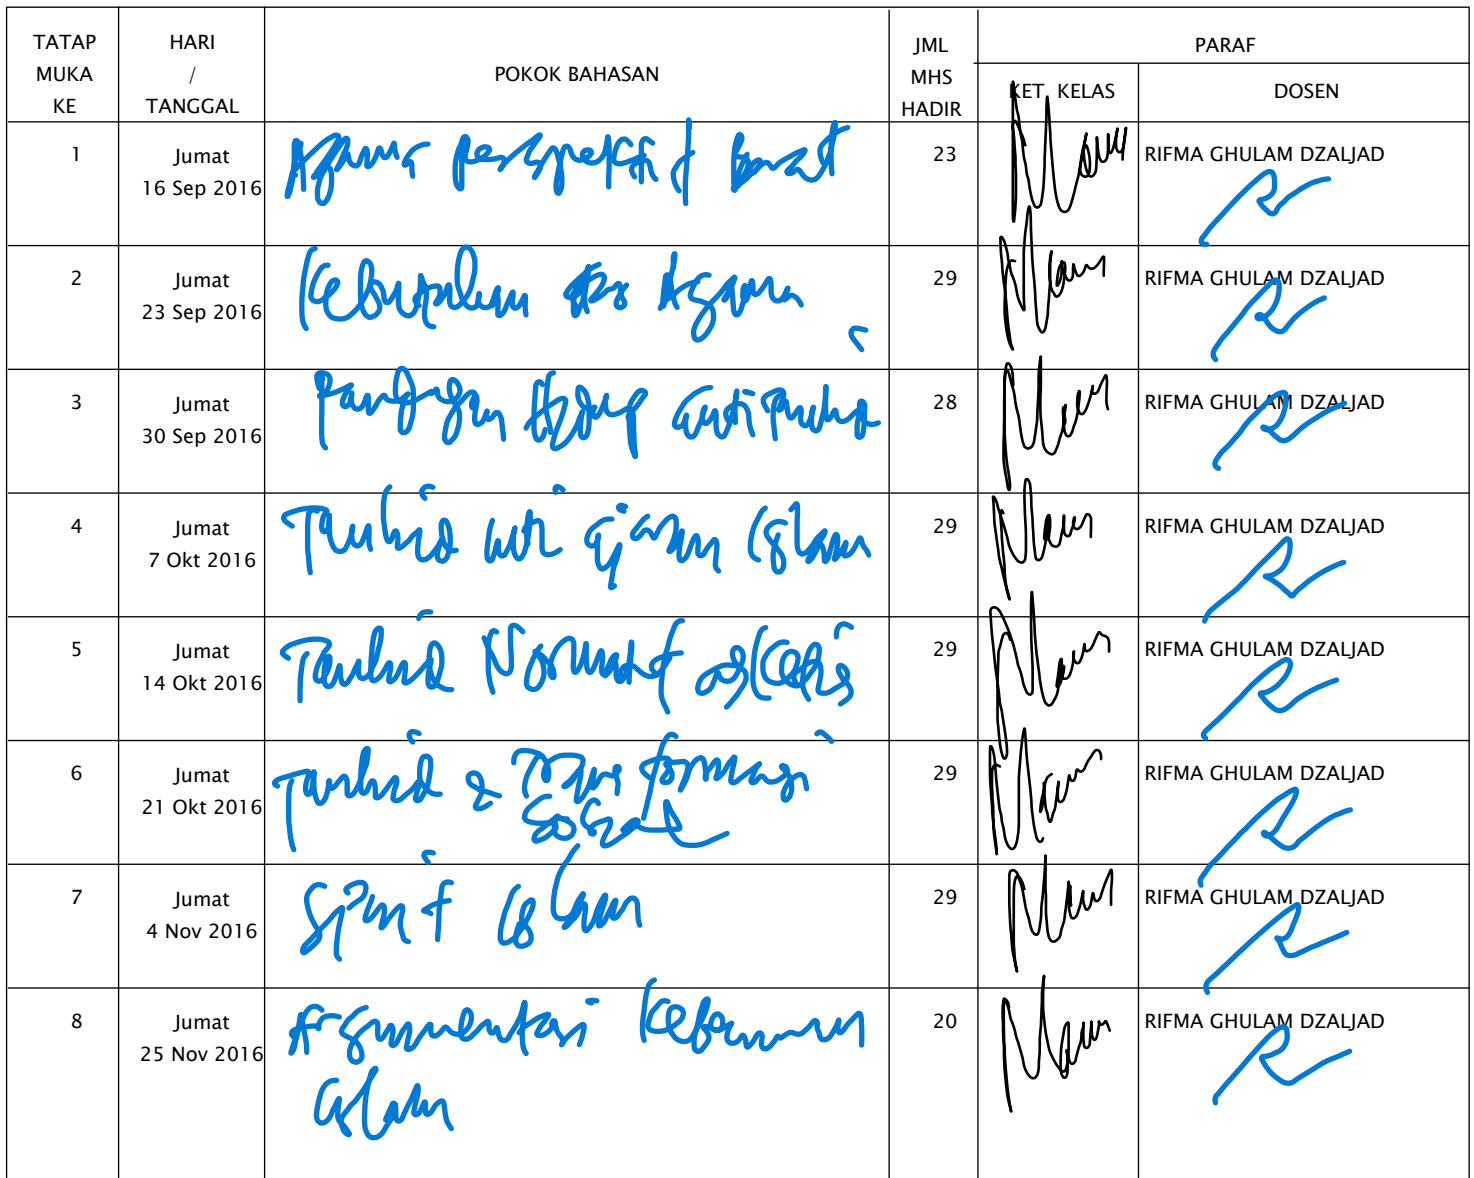 TATAP MUKA KE HARI / TANGGAL POKOK BAHASAN JML MHS HADIR PARAF
KET. KELAS DOSEN
1 Jumat 16 Sep 2016 Agama perspektif barat 23 RIFMA GHULAM DZALJAD
2 Jumat 23 Sep 2016 Kebutuhan Agama 29 RIFMA GHULAM DZALJAD
3 Jumat 30 Sep 2016 Pandangan Hidup Tauhid 28 RIFMA GHULAM DZALJAD
4 Jumat 7 Okt 2016 Tauhid inti ajaran Islam 29 RIFMA GHULAM DZALJAD
5 Jumat 14 Okt 2016 Tauhid Normatif 29 RIFMA GHULAM DZALJAD
6 Jumat 21 Okt 2016 Tauhid & Transformasi 29 RIFMA GHULAM DZALJAD
Sosial
7 Jumat 4 Nov 2016 Spirit Islam 29 RIFMA GHULAM DZALJAD
8 Jumat 25 Nov 2016 Argumentasi Kebenaran 20 RIFMA GHULAM DZALJAD
Islam